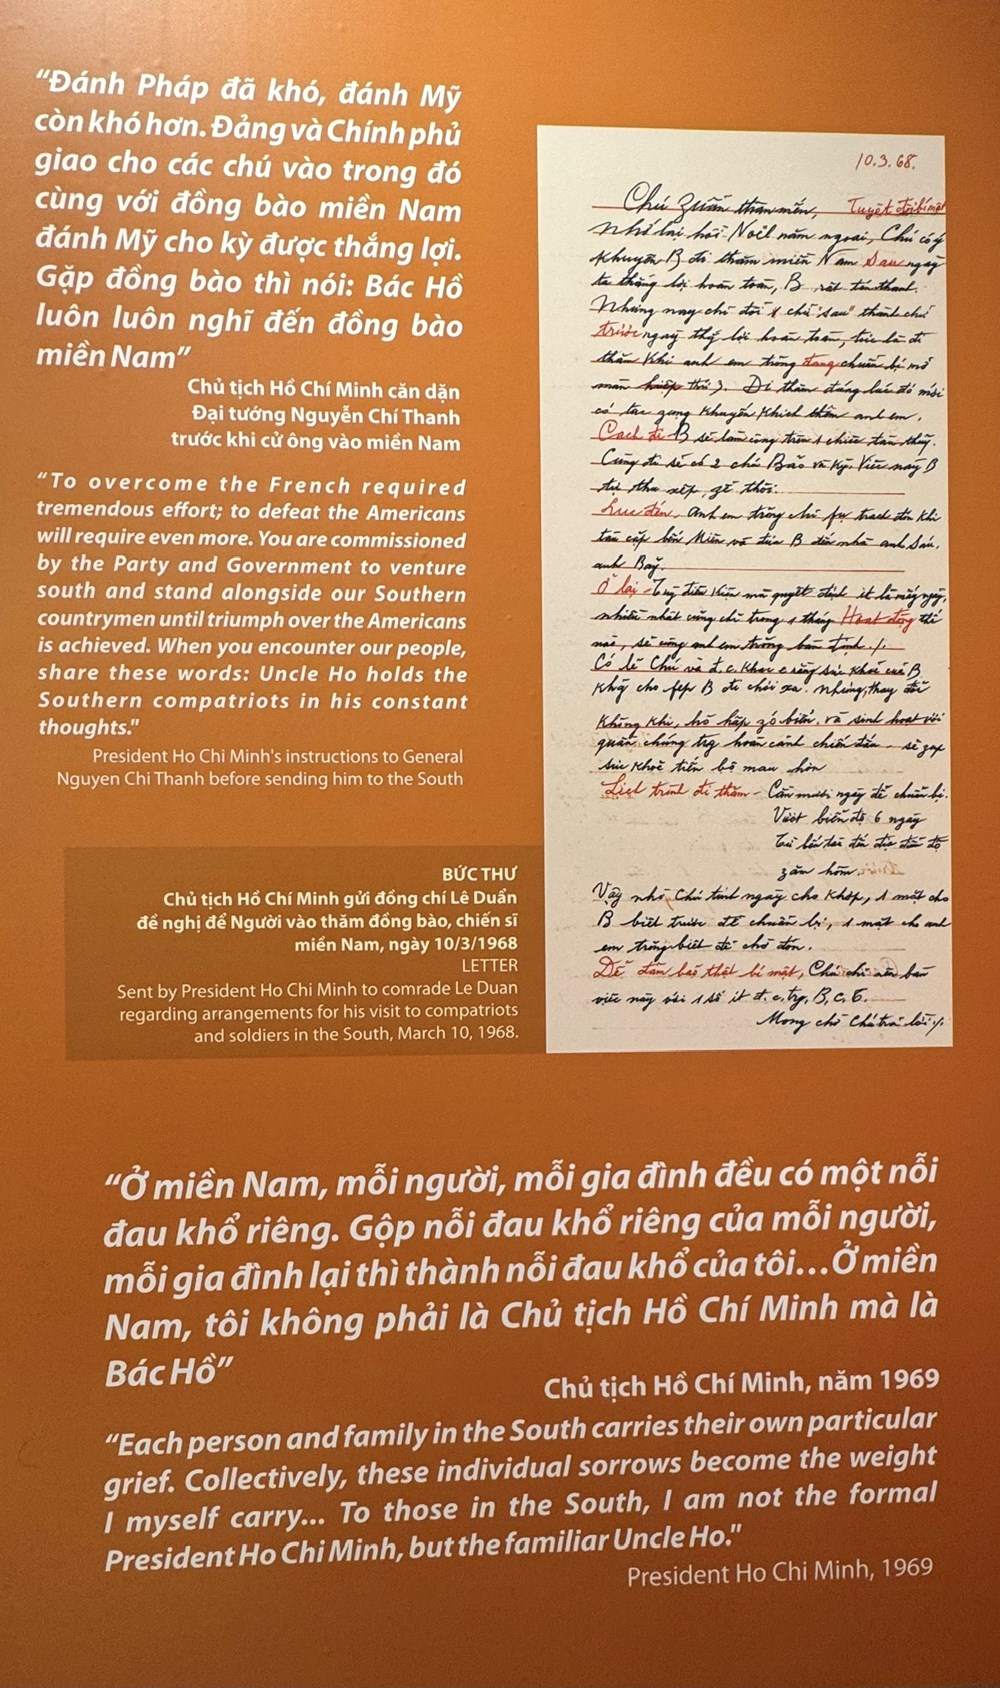 “Đánh Pháp đã khó, đánh Mỹ
còn khó hơn. Đảng và Chính phủ
giao cho các chú vào trong đó
cùng với đồng bào miền Nam
đánh Mỹ cho kỳ được thắng lợi.
Gặp đồng bào thì nói: Bác Hồ
luôn luôn nghĩ đến đồng bào
miền Nam”
Chủ tịch Hồ Chí Minh căn dặn
Đại tướng Nguyễn Chí Thanh
trước khi cử ông vào miền Nam
“To overcome the French required
tremendous effort; to defeat the Americans
will require even more. You are commissioned
by the Party and Government to venture
south and stand alongside our Southern
countrymen until triumph over the Americans
is achieved. When you encounter our people,
share these words: Uncle Ho holds the
Southern compatriots in his constant
thoughts."
President Ho Chi Minh's instructions to General
Nguyen Chi Thanh before sending him to the South
10.3.68.
Chú Zuẩn thân mến, Tuyệt đối bí mật
Nhớ lại hồi Noel năm ngoái, Chú có ý
khuyên B đi thăm miền Nam sau ngày
ta thắng lợi hoàn toàn, B rất tán thành.
Nhưng nay chỉ đổi 1 chữ "sau" thành chữ
trước ngày thắng lợi hoàn toàn, tức là đi
thăm khi anh em trong đang chuẩn bị mở
màn thứ 3. Đi thăm đúng lúc đó mới
có tác zụng khuyến khích thêm anh em.
Cách đi B sẽ làm công trên 1 chiếc tàu thủy.
Cùng đi sẽ có 2 chú Bảo và Kỳ. Việc này B
tự thu xếp, zễ thôi.
Lúc đến, anh em trong chỉ fụ trách đón khi
tàu cập bến Miên và đưa B đến nhà anh Sáu,
anh Bảy.
Ở lại - Tùy điều kiện mà quyết định ít là mấy ngày,
nhiều nhất cũng chỉ trong 1 tháng Hoạt động thế
nào, sẽ cùng anh em trong bàn định ./.
Có lẽ Chú và đ.c. khác e rằng sức khỏe của B
không cho fép B đi chơi xa. Nhưng, thay đổi
không khí, hô hấp zó biển, và sinh hoạt với
quần chúng trg hoàn cảnh chiến đấu - sẽ zúp
sức khỏe tiến bộ mau hơn
Lịch trình đi thăm - Cần mười ngày để chuẩn bị.
Vượt biển độ 6 ngày
Từ bến tàu đến địa điểm độ
zăm hôm.
Vậy nhờ Chú tính ngày cho khớp, 1 mặt cho
B biết trước để chuẩn bị, 1 mặt cho anh
em trong biết để chờ đón.
Để đảm bảo thật bí mật, Chú chỉ nên bàn
việc này với 1 số ít đ.c. trg. B.C.T.
Mong chờ Chú trả lời ./.
BỨC THƯ
Chủ tịch Hồ Chí Minh gửi đồng chí Lê Duẩn
đề nghị để Người vào thăm đồng bào, chiến sĩ
miền Nam, ngày 10/3/1968
LETTER
Sent by President Ho Chi Minh to comrade Le Duan
regarding arrangements for his visit to compatriots
and soldiers in the South, March 10, 1968.
“Ở miền Nam, mỗi người, mỗi gia đình đều có một nỗi
đau khổ riêng. Gộp nỗi đau khổ riêng của mỗi người,
mỗi gia đình lại thì thành nỗi đau khổ của tôi...Ở miền
Nam, tôi không phải là Chủ tịch Hồ Chí Minh mà là
Bác Hồ”
Chủ tịch Hồ Chí Minh, năm 1969
“Each person and family in the South carries their own particular
grief. Collectively, these individual sorrows become the weight
I myself carry... To those in the South, I am not the formal
President Ho Chi Minh, but the familiar Uncle Ho."
President Ho Chi Minh, 1969